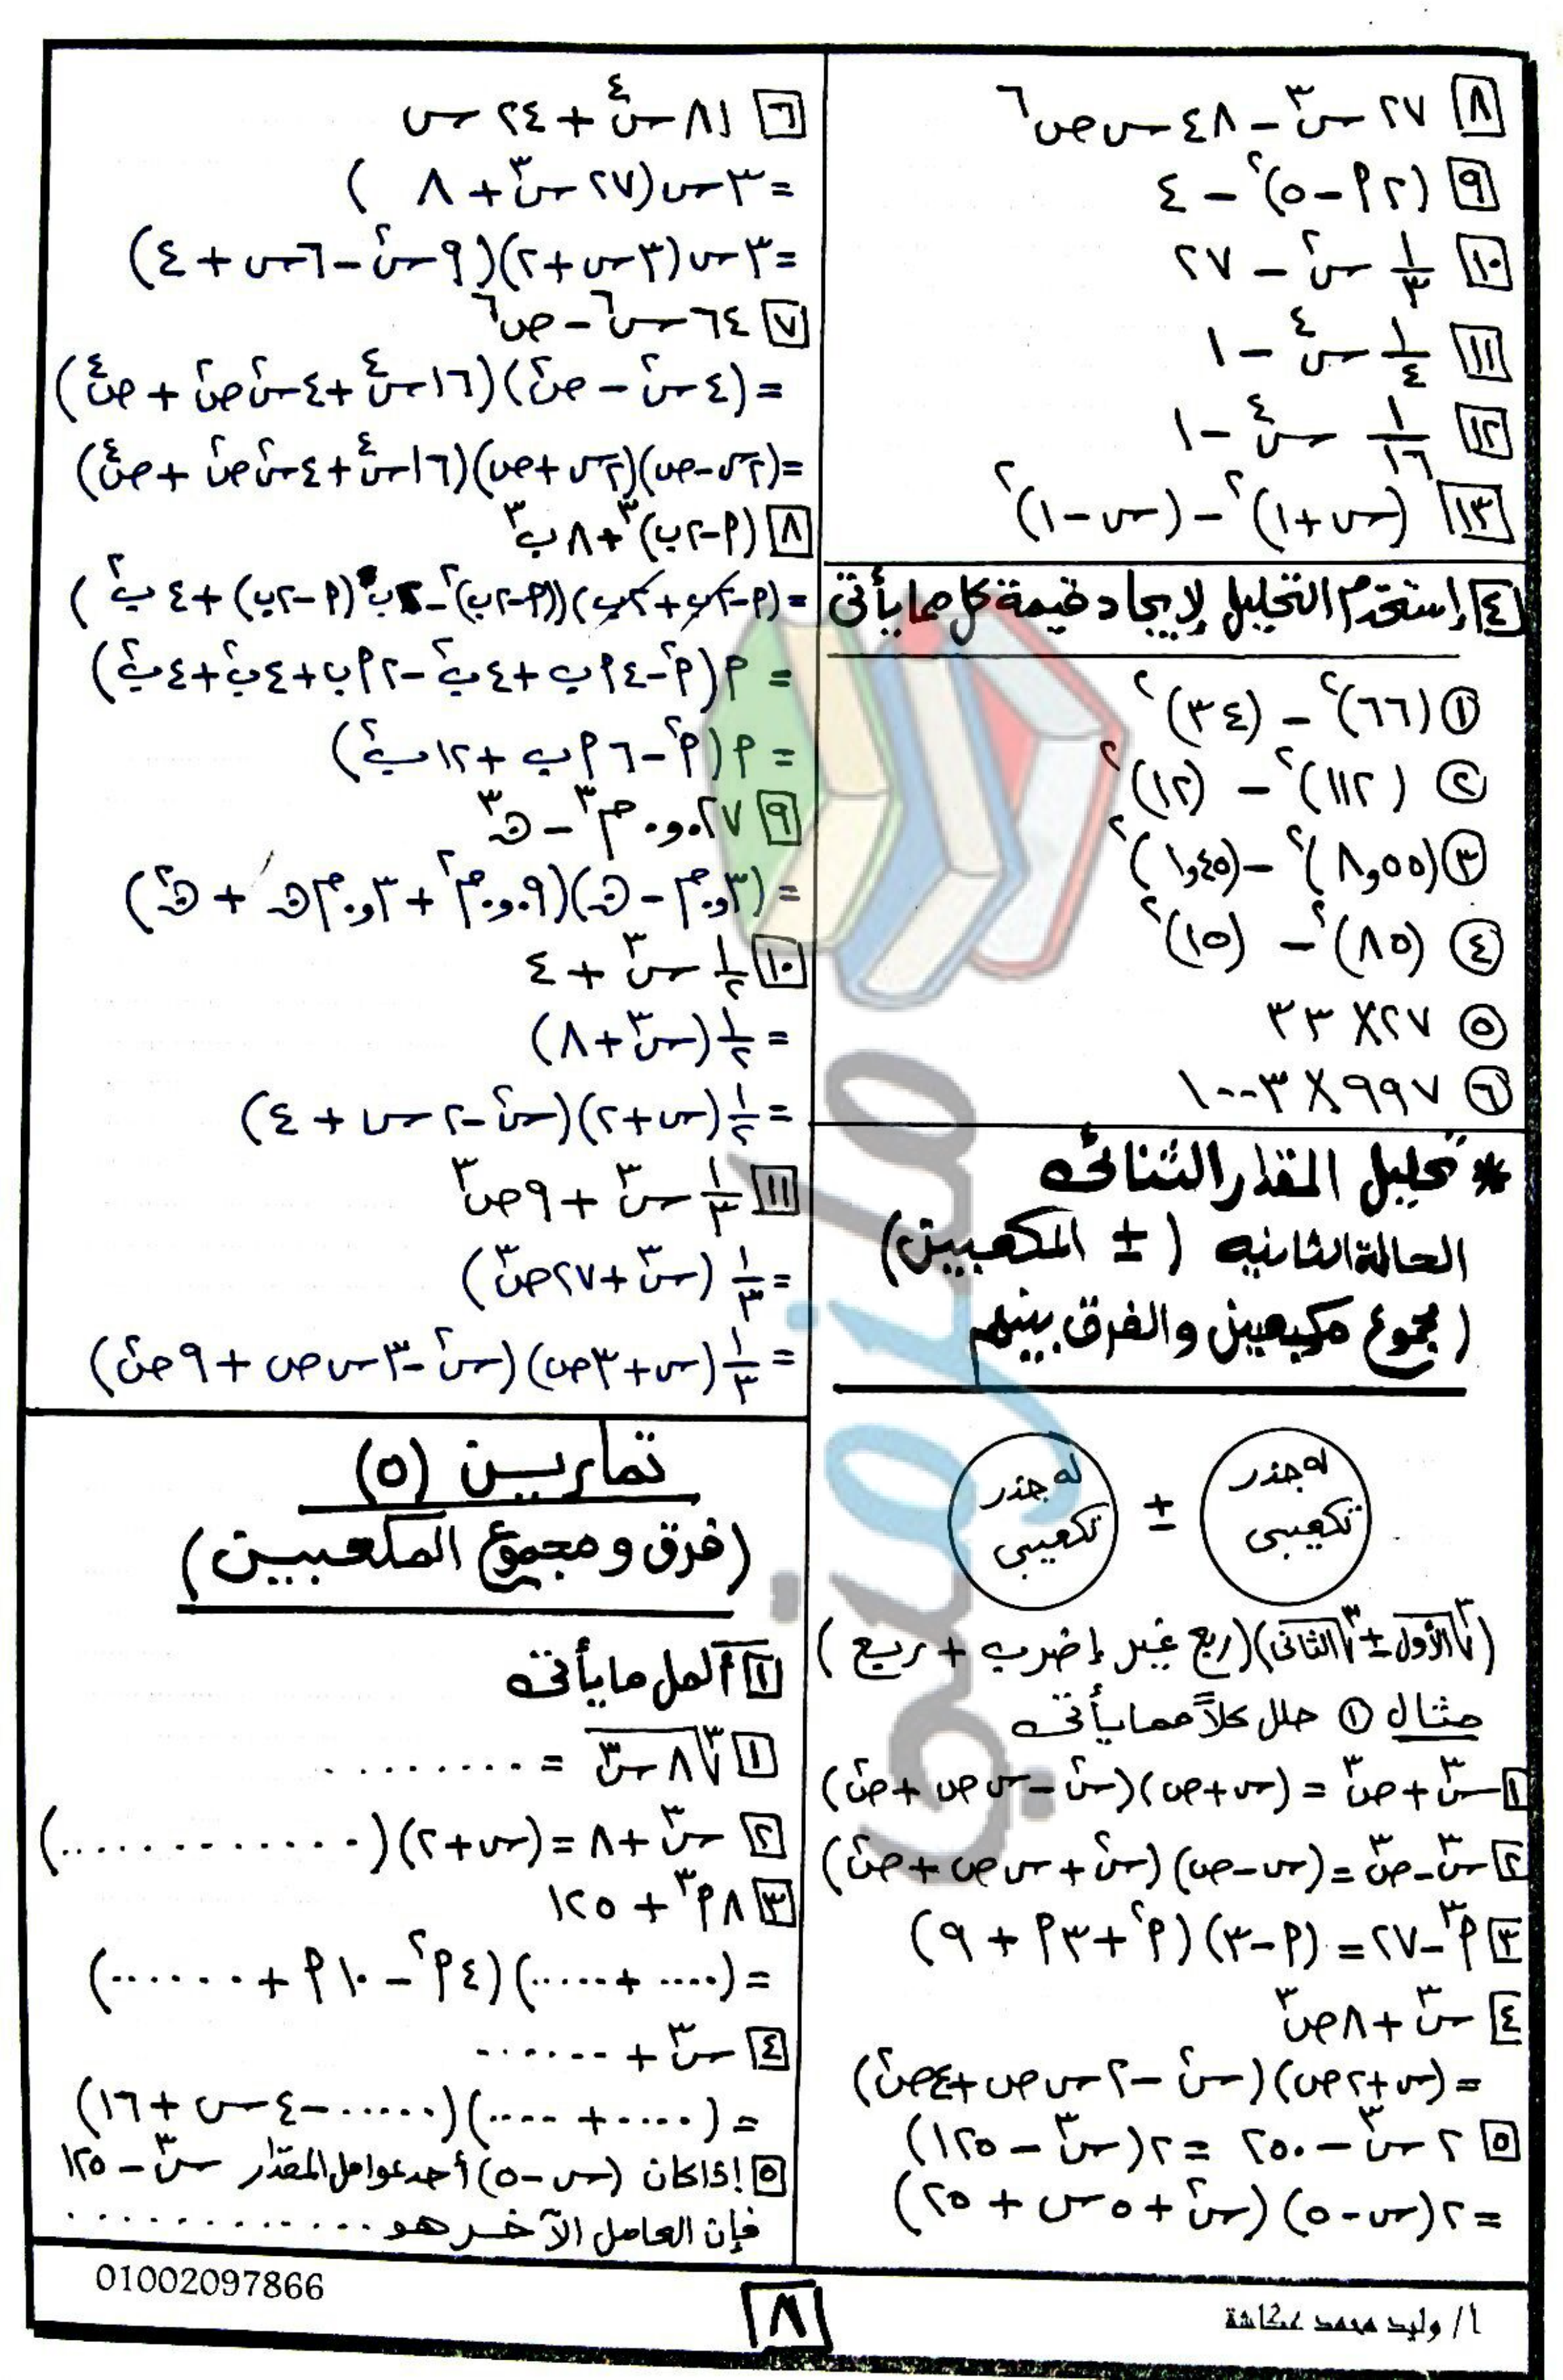 ٨ ٢٧ س٣ - ٤٨ س ص٦
٩ (٢ م - ٥)٢ - ٤
١٠ ١/٣ س٢ - ٢٧
١١ ١/٤ س٤ - ١
١٢ ١/١٦ س٤ - ١
١٣ (س + ١)٢ - (س - ١)٢
٤ إستخدم التحليل لإيجاد قيمة كل مما يأتى
١ (٦٦)٢ - (٣٤)٢
٢ (١١٢)٢ - (١٢)٢
٣ (٨,٥٥)٢ - (١,٤٥)٢
٤ (٨٥)٢ - (١٥)٢
٥ ٢٧ × ٣٣
٦ ٩٩٧ × ١٠٠٣
* تحليل المقدار الثنائى
الحالة الثانيه ( ± المكعبين)
(مجموع مكعبين والفرق بينهم
له جذر تكعيبى ± له جذر تكعيبى
(٣√الأول ± ٣√الثانى)(ربع غير إضرب + ربع )
مثال ١ حلل كلاً مما يأتى
١ س٣ + ص٣ = (س + ص)(س٢ - س ص + ص٢)
٢ س٣ - ص٣ = (س - ص)(س٢ + س ص + ص٢)
٣ م٣ - ٢٧ = (م - ٣)(م٢ + ٣م + ٩)
٤ س٣ + ٨ص٣
= (س + ٢ص)(س٢ - ٢ س ص + ٤ص٢)
٥ ٢ س٣ - ٢٥٠ = ٢(س٣ - ١٢٥)
= ٢(س - ٥)(س٢ + ٥ س + ٢٥)
٦ ٨١ س٤ + ٢٤ س
= ٣ س(٢٧ س٣ + ٨ )
= ٣ س(٣ س + ٢)(٩ س٢ - ٦ س + ٤)
٧ ٦٤ س٦ - ص٦
= (٤ س٢ - ص٢)(١٦ س٤ + ٤ س٢ص٢ + ص٤)
= (٢س - ص)(٢س + ص)(١٦ س٤ + ٤ س٢ص٢ + ص٤)
٨ (م - ٢ب)٣ + ٨ ب٣
= (م - ٢ب + ٢ب)((م - ٢ب)٢ - ٢ب(م - ٢ب) + ٤ ب٢)
= م(م٢ - ٤م ب + ٤ ب٢ - ٢م ب + ٤ب٢ + ٤ب٢)
= م(م٢ - ٦ م ب + ١٢ ب٢)
٩ ٠,٠٢٧ م٣ - ن٣
= (٠,٣م - ن)(٠,٠٩م٢ + ٠,٣م ن + ن٢)
١٠ ١/٢ س٣ + ٤
= ١/٢ (س٣ + ٨)
= ١/٢ (س + ٢)(س٢ - ٢ س + ٤)
١١ ١/٣ س٣ + ٩ص٣
= ١/٣ (س٣ + ٢٧ص٣)
= ١/٣ (س + ٣ص)(س٢ - ٣ س ص + ٩ص٢)
تمارين (٥)
(فرق ومجموع المكعبين)
١ أكمل ما يأتى
١ ٣√٨ س٣ = .........
٢ س٣ + ٨ = (س + ٢)(............)
٣ ٨م٣ + ١٢٥
= (.... + .....)(٤م٢ - ١٠ م + .......)
٤ س٣ + ......
= (..... + ....)(...... - ٤ س + ١٦)
٥ إذا كان (س - ٥) أحد عوامل المقدار س٣ - ١٢٥
فإن العامل الآخر هو .............
أ/ وليد محمد عكاشة
٨
01002097866